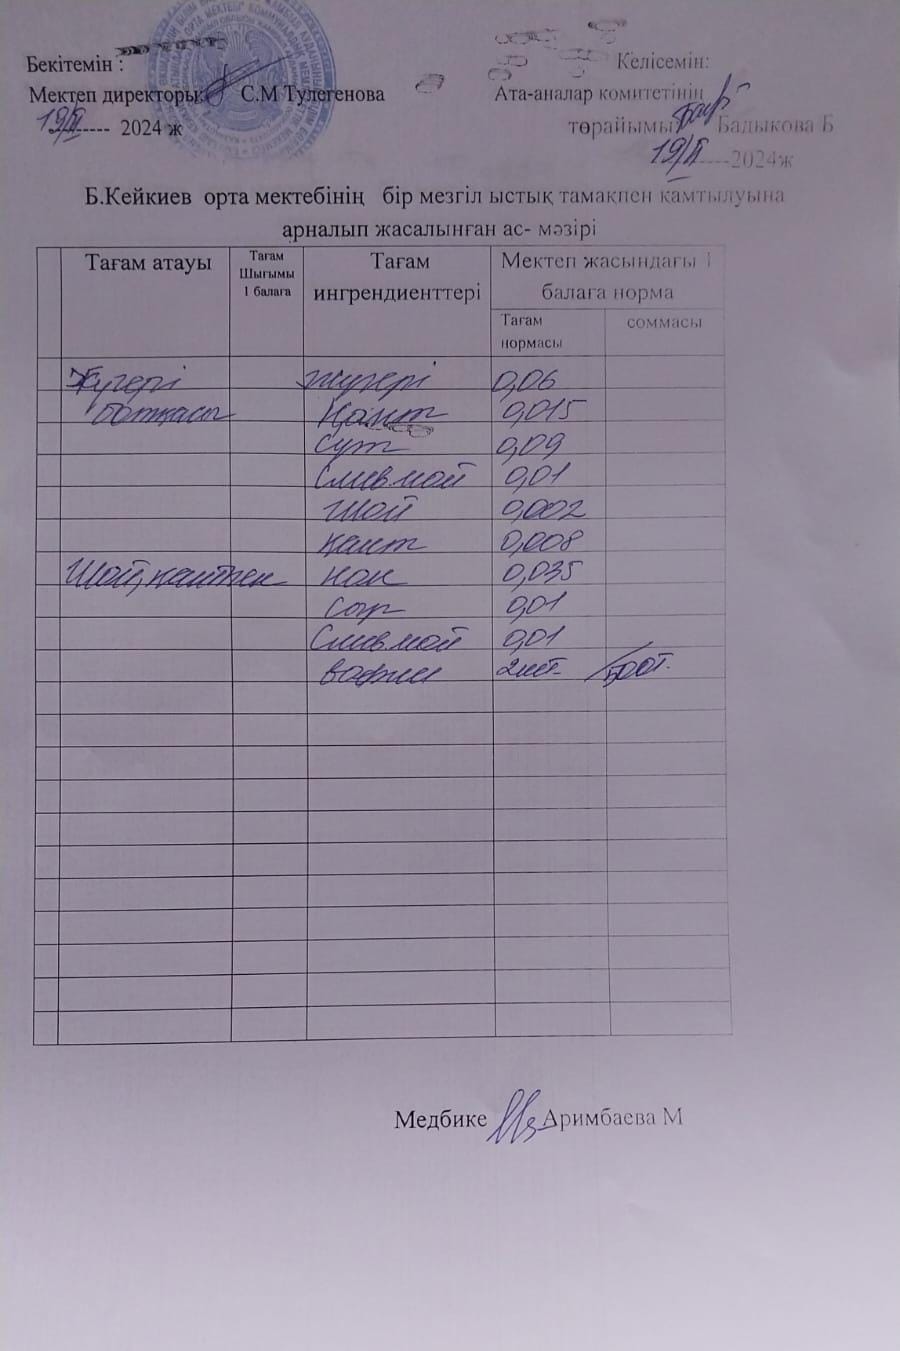 Бекітемін :
Келісемін:
Мектеп директоры: С.М Тулегенова
Ата-аналар комитетінің
19/ІІ ------ 2024 ж
төрайымы Бадыкова Б
19/ІІ ----2024ж
Б.Кейкиев орта мектебінің бір мезгіл ыстық тамақпен қамтылуына
арналып жасалынған ас- мәзірі
Тағам атауы
Тағам
Шығымы
1 балаға
Тағам
ингрендиенттері
Мектеп жасындағы 1
балаға норма
Тағам
нормасы
соммасы
Жүгері жүгері 0,06
ботқасы Қант 0,015
Сүт 0,09
Слив май 0,01
Шай 0,002
қант 0,008
Шай, қантпен нан 0,035
Сыр 0,01
Слив май 0,01
вафли 2шт.
Медбике Аримбаева М